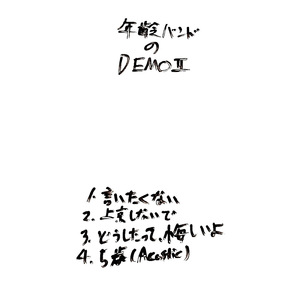 年齢バンド
の
DEMOⅡ
1. 言いたくない
2. 上京しないで
3. どうしたって、悔しいよ
4. 5歳(Acoustic)